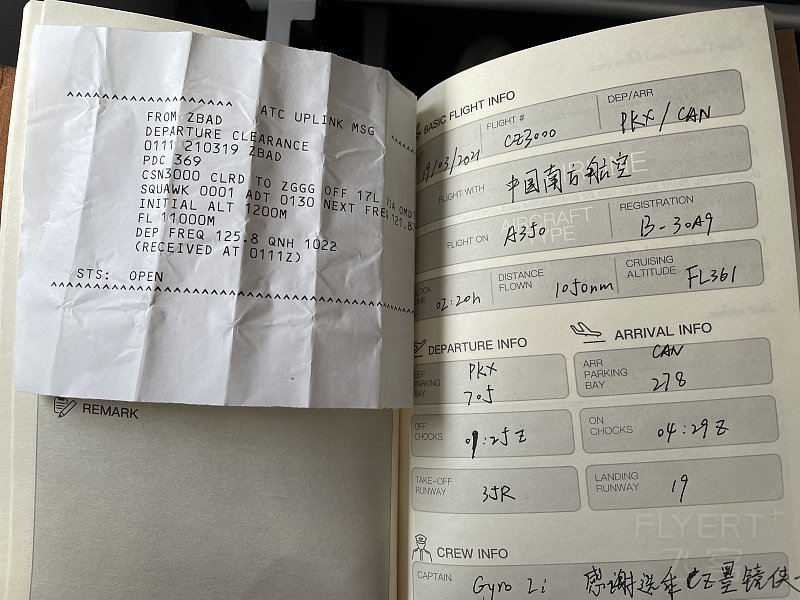 ATC UPLINK MSG
FROM ZBAD
DEPARTURE CLEARANCE
0111 210319 ZBAD
PDC 369
CSN3000 CLRD TO ZGGG OFF 17L VIA OMD
SQUAWK 0001 ADT 0130 NEXT FREQ 121.8
INITIAL ALT 1200M
FL 11000M
DEP FREQ 125.8 QNH 1022
(RECEIVED AT 0111Z)
STS: OPEN
REMARK
BASIC FLIGHT INFO
19/03/2021
FLIGHT #
CZ3000
DEP/ARR
PKX / CAN
FLIGHT WITH
中国南方航空
FLIGHT ON
A350
AIRCRAFT
TYPE
REGISTRATION
B-30A9
02:20h
DISTANCE
FLOWN
1050nm
CRUISING
ALTITUDE
FL361
DEPARTURE INFO
DEP
PARKING
BAY
PKX
705
OFF
CHOCKS
01:25Z
TAKE-OFF
RUNWAY
35R
ARRIVAL INFO
ARR
PARKING
BAY
CAN
278
ON
CHOCKS
04:29Z
LANDING
RUNWAY
19
CREW INFO
CAPTAIN
Gyro Li 感谢选乘CZ墨镜侠
FLYERT